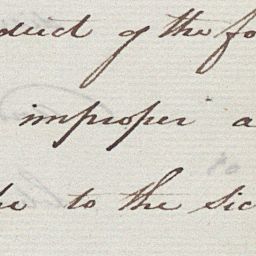 duct of the fo
improper a
he to the sic